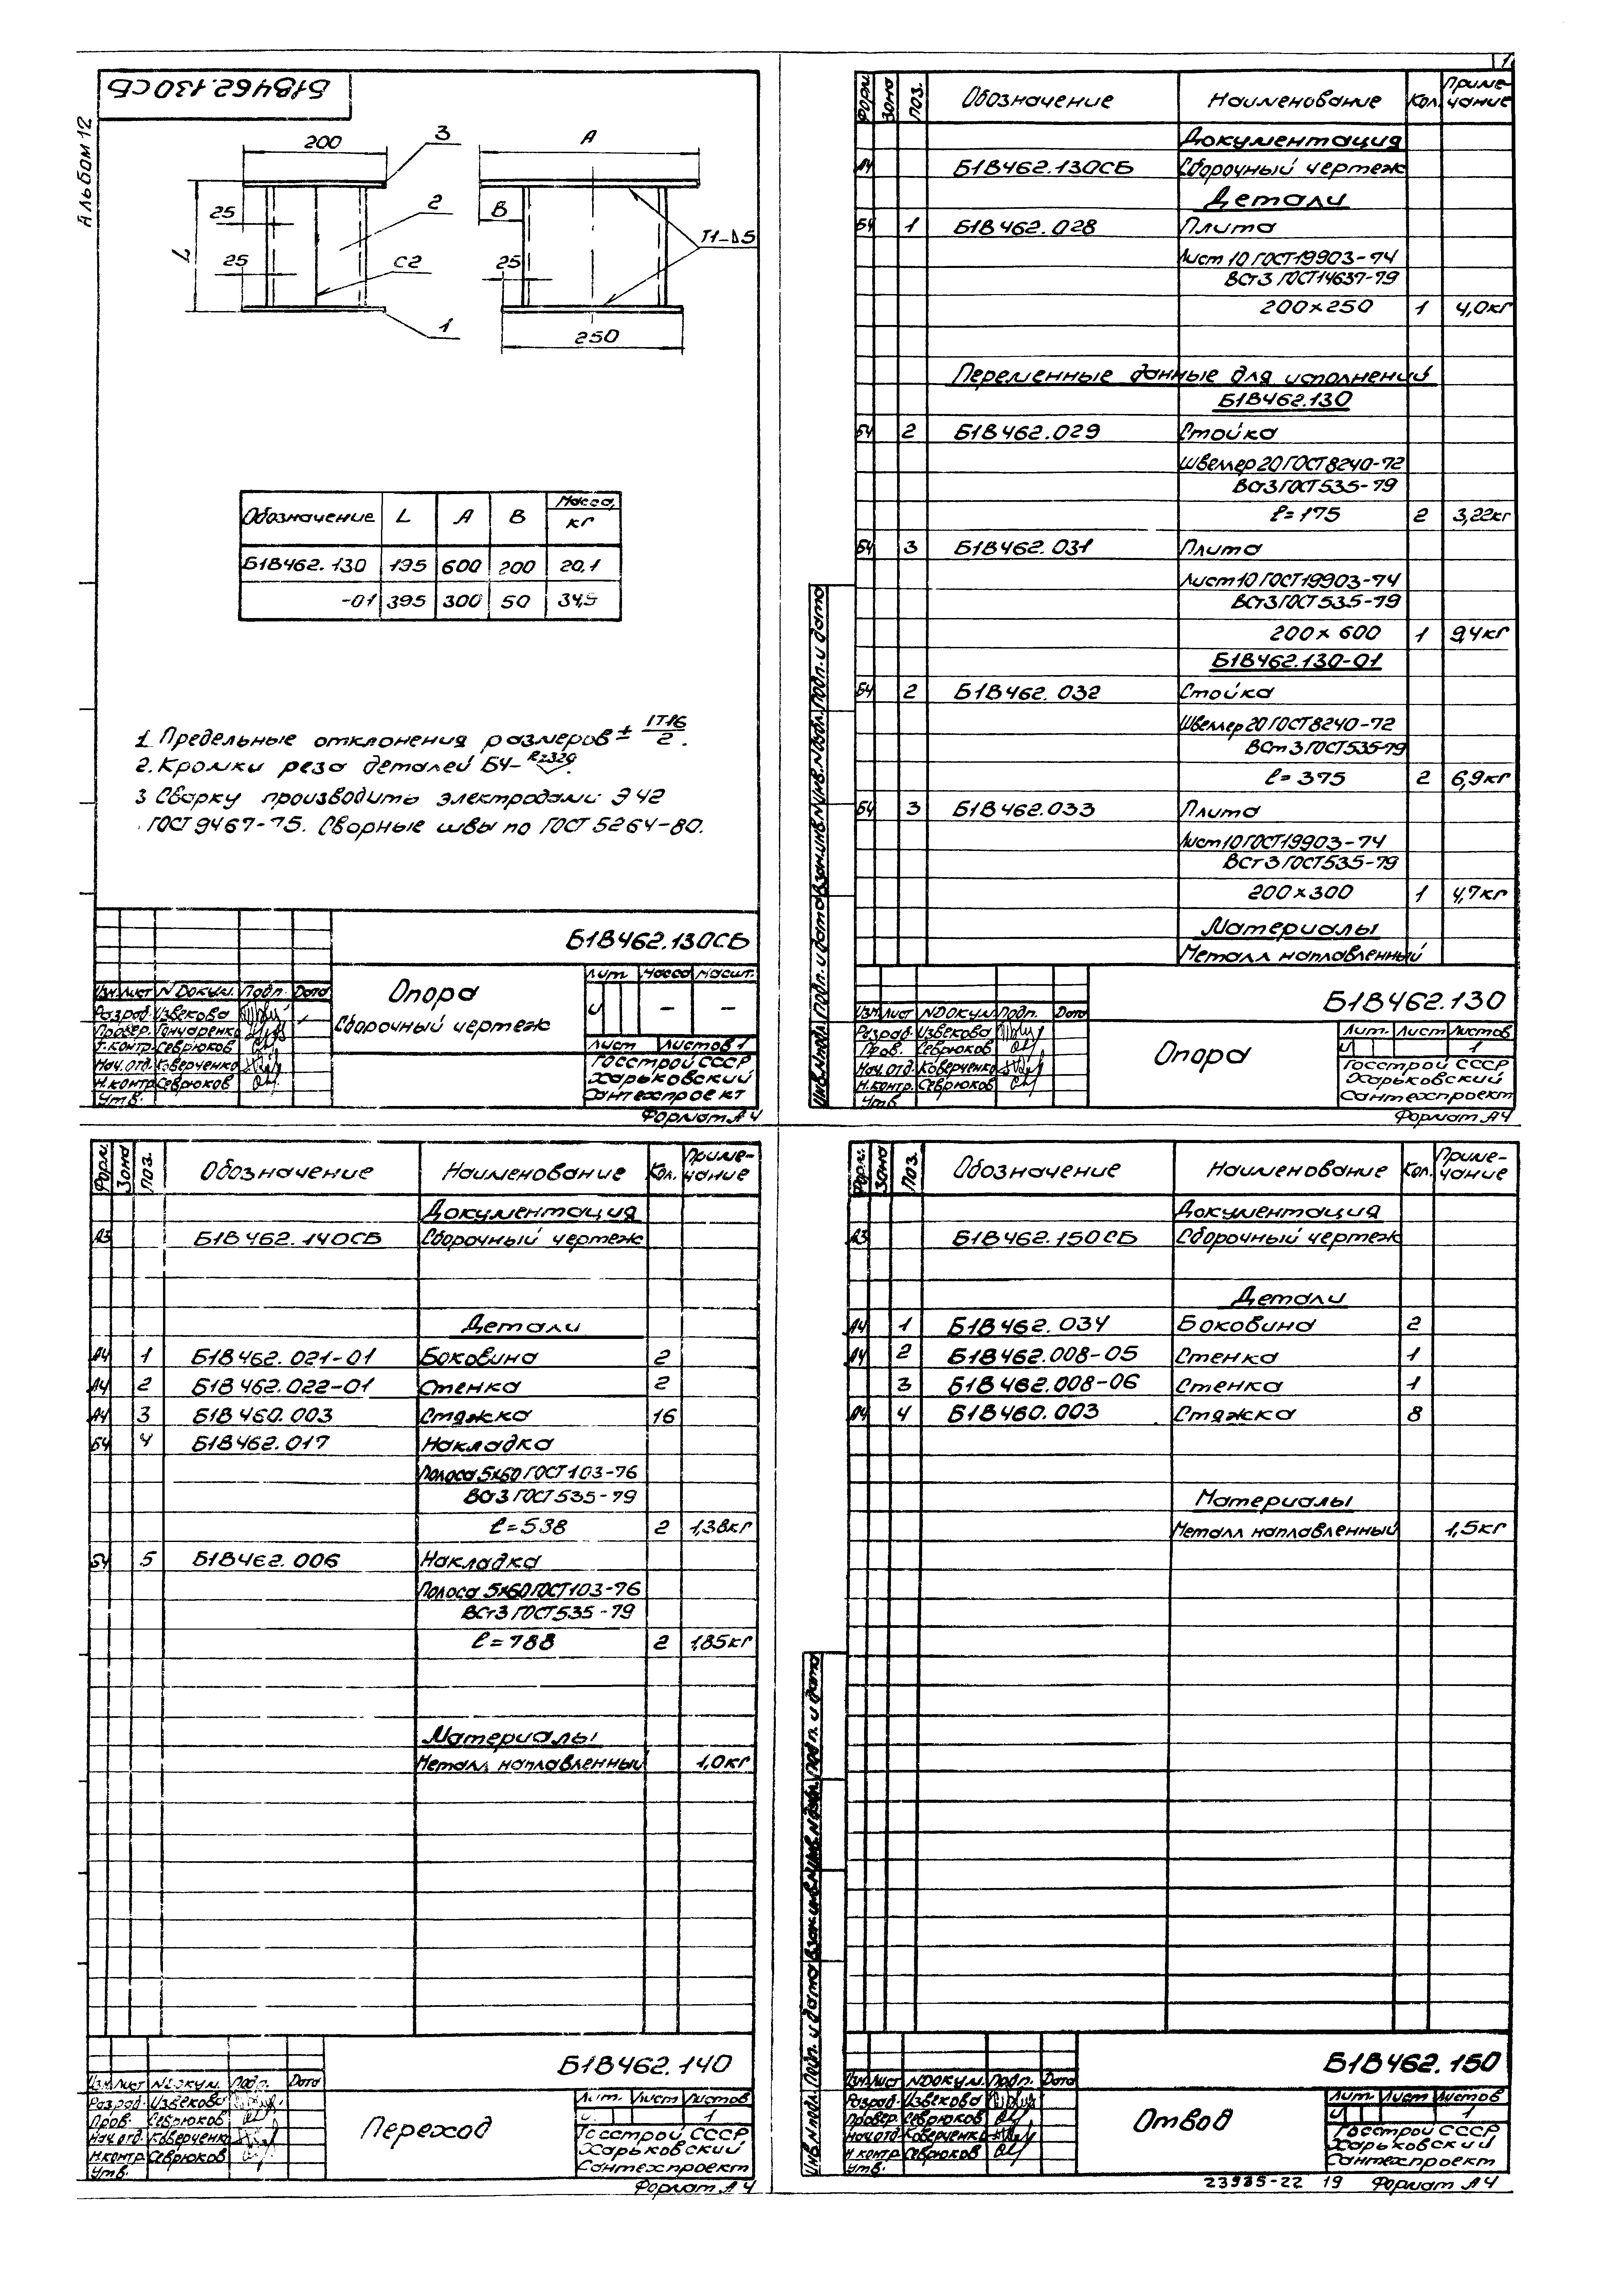 Б1В462.130СБ
Альбом 12
200
3
А
25
2
В
Т1-⊿5
L
25
С2
25
1
250
Обозначение L А В Масса, кг
Б1В462.130 195 600 200 20,1
-01 395 300 50 34,5
1. Предельные отклонения размеров ± IT16/2.
2. Кромки реза деталей БЧ- Rz320.
3 Сварку производить электродами Э42
ГОСТ 9467-75. Сварные швы по ГОСТ 5264-80.
Б1В462.130СБ
Опора
Сборочный чертеж
Лит. Масса Масшт.
И – –
Лист Листов 1
Изм Лист N Докум. Подп. Дата
Разраб. Извекова
Провер. Гончаренко
Т.контр. Севрюков
Нач.отд. Коверченко
Н.контр. Севрюков
Утв.
Госстрой СССР
Харьковский
Сантехпроект
Формат А4
1
Форм. Зона Поз. Обозначение Наименование Кол. Примечание
Документация
А4 Б1В462.130СБ Сборочный чертеж
Детали
БЧ 1 Б1В462.028 Плита
Лист 10 ГОСТ 19903-74
ВСт3 ГОСТ 14637-79
200х250 1 4,0кг
Переменные данные для исполнений
Б1В462.130
БЧ 2 Б1В462.029 Стойка
Швеллер 20 ГОСТ 8240-72
ВСт3 ГОСТ 535-79
ℓ=175 2 3,22кг
БЧ 3 Б1В462.031 Плита
Лист 10 ГОСТ 19903-74
ВСт3 ГОСТ 535-79
200х600 1 9,4кг
Б1В462.130-01
БЧ 2 Б1В462.032 Стойка
Швеллер 20 ГОСТ 8240-72
ВСт3 ГОСТ 535-79
ℓ=375 2 6,9кг
БЧ 3 Б1В462.033 Плита
Лист 10 ГОСТ 19903-74
ВСт3 ГОСТ 535-79
200х300 1 4,7кг
Материалы
Металл наплавленный
Инв.N подл. Подп. и дата Взам.инв.N Инв.N дубл. Подп. и дата
Б1В462.130
Изм Лист N Докум. Подп. Дата
Разраб. Извекова
Пров. Севрюков
Нач.отд. Коверченко
Н.контр. Севрюков
Утв.
Опора
Лит. Лист Листов
И 1
Госстрой СССР
Харьковский
Сантехпроект
Формат А4
Форм. Зона Поз. Обозначение Наименование Кол. Примечание
Документация
А3 Б1В462.140СБ Сборочный чертеж
Детали
А4 1 Б1В462.021-01 Боковина 2
А4 2 Б1В462.022-01 Стенка 2
А4 3 Б1В460.003 Стяжка 16
БЧ 4 Б1В462.017 Накладка
Полоса 5х60 ГОСТ 103-76
ВСт3 ГОСТ 535-79
ℓ=538 2 1,38кг
БЧ 5 Б1В462.006 Накладка
Полоса 5х60 ГОСТ 103-76
ВСт3 ГОСТ 535-79
ℓ=788 2 1,85кг
Материалы
Металл наплавленный 1,0кг
Б1В462.140
Изм Лист N Докум. Подп. Дата
Разраб. Извекова
Пров. Севрюков
Нач.отд. Коверченко
Н.контр. Севрюков
Утв.
Переход
Лит. Лист Листов
И 1
Госстрой СССР
Харьковский
Сантехпроект
Формат А4
Форм. Зона Поз. Обозначение Наименование Кол. Примечание
Документация
А3 Б1В462.150СБ Сборочный чертеж
Детали
А4 1 Б1В462.034 Боковина 2
А4 2 Б1В462.008-05 Стенка 1
3 Б1В462.008-06 Стенка 1
А4 4 Б1В460.003 Стяжка 8
Материалы
Металл наплавленный 1,5кг
Инв.N подл. Подп. и дата Взам.инв.N Инв.N дубл. Подп. и дата
Б1В462.150
Изм Лист N Докум. Подп. Дата
Разраб. Извекова
Провер. Севрюков
Нач.отд. Коверченко
Н.контр. Севрюков
Утв.
Отвод
Лит. Лист Листов
И 1
Госстрой СССР
Харьковский
Сантехпроект
23985-22 19 Формат А4